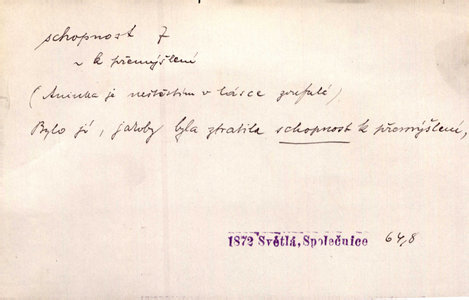 schopnost 7
~ k přemýšlení
(Aninka je neštěstím v lásce zoufalá)
Bylo jí, jakoby byla ztratila schopnost k přemýšlení,
1872 Světlá, Společnice 64,8